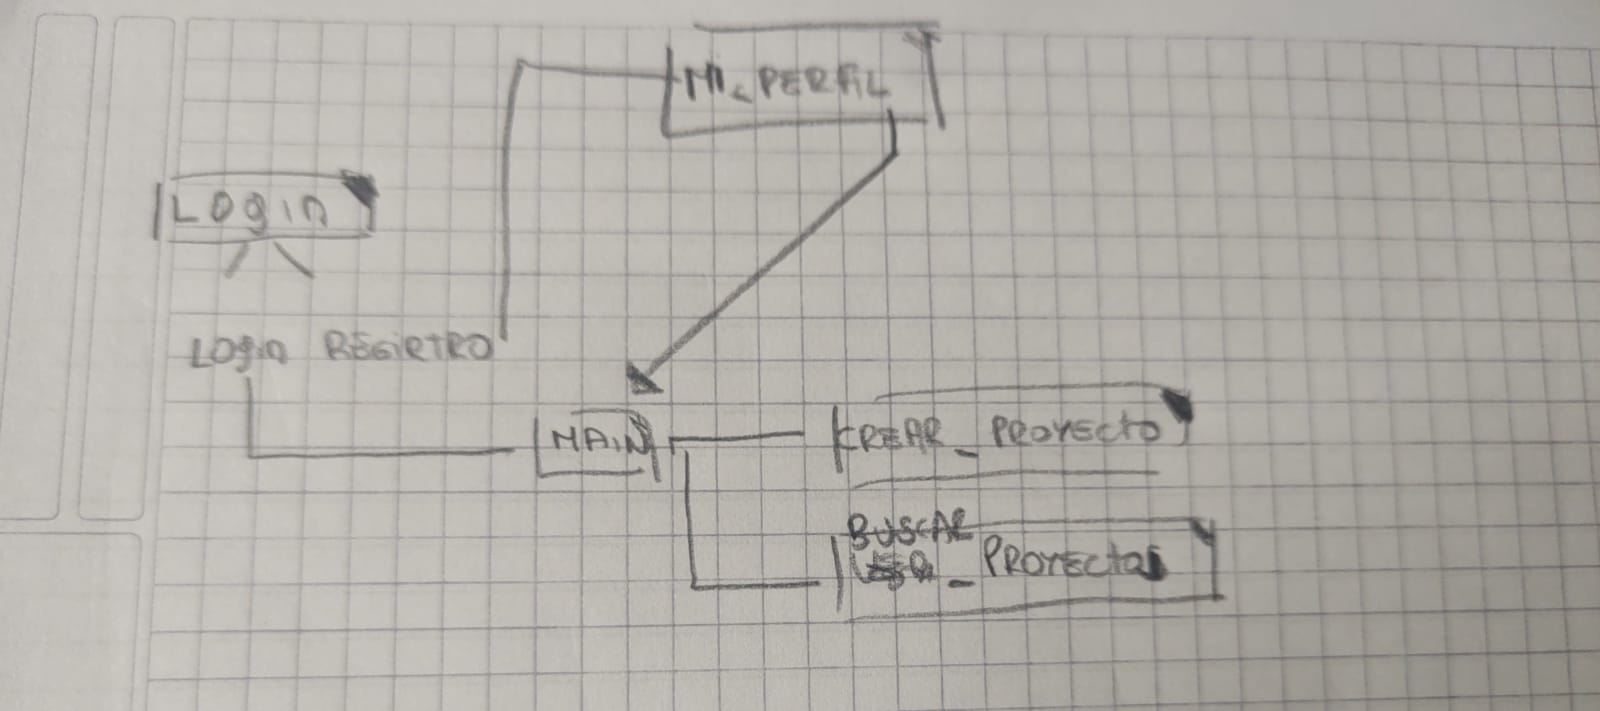 MI_PERFIL
LOgin
LOgin REGISTRO
MAIN
CREAR_PROYECTO
BUSCAR
_PROYECTOS